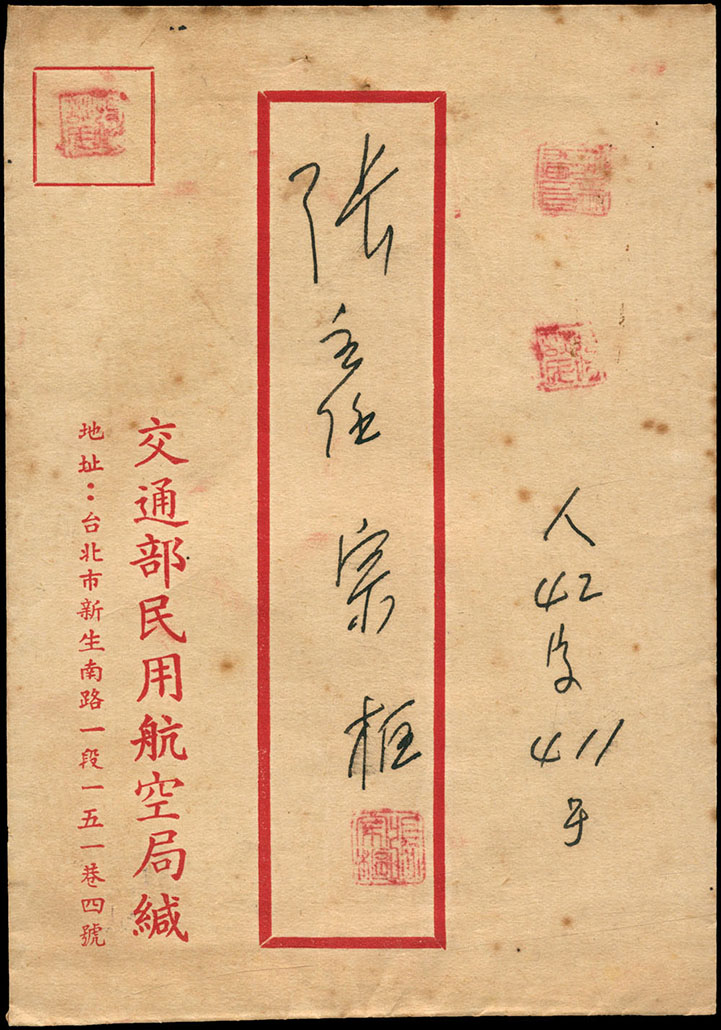 人42字411号
張主任宗
交通部民用航空局緘
地址：台北市新生南路一段一五一巷四號